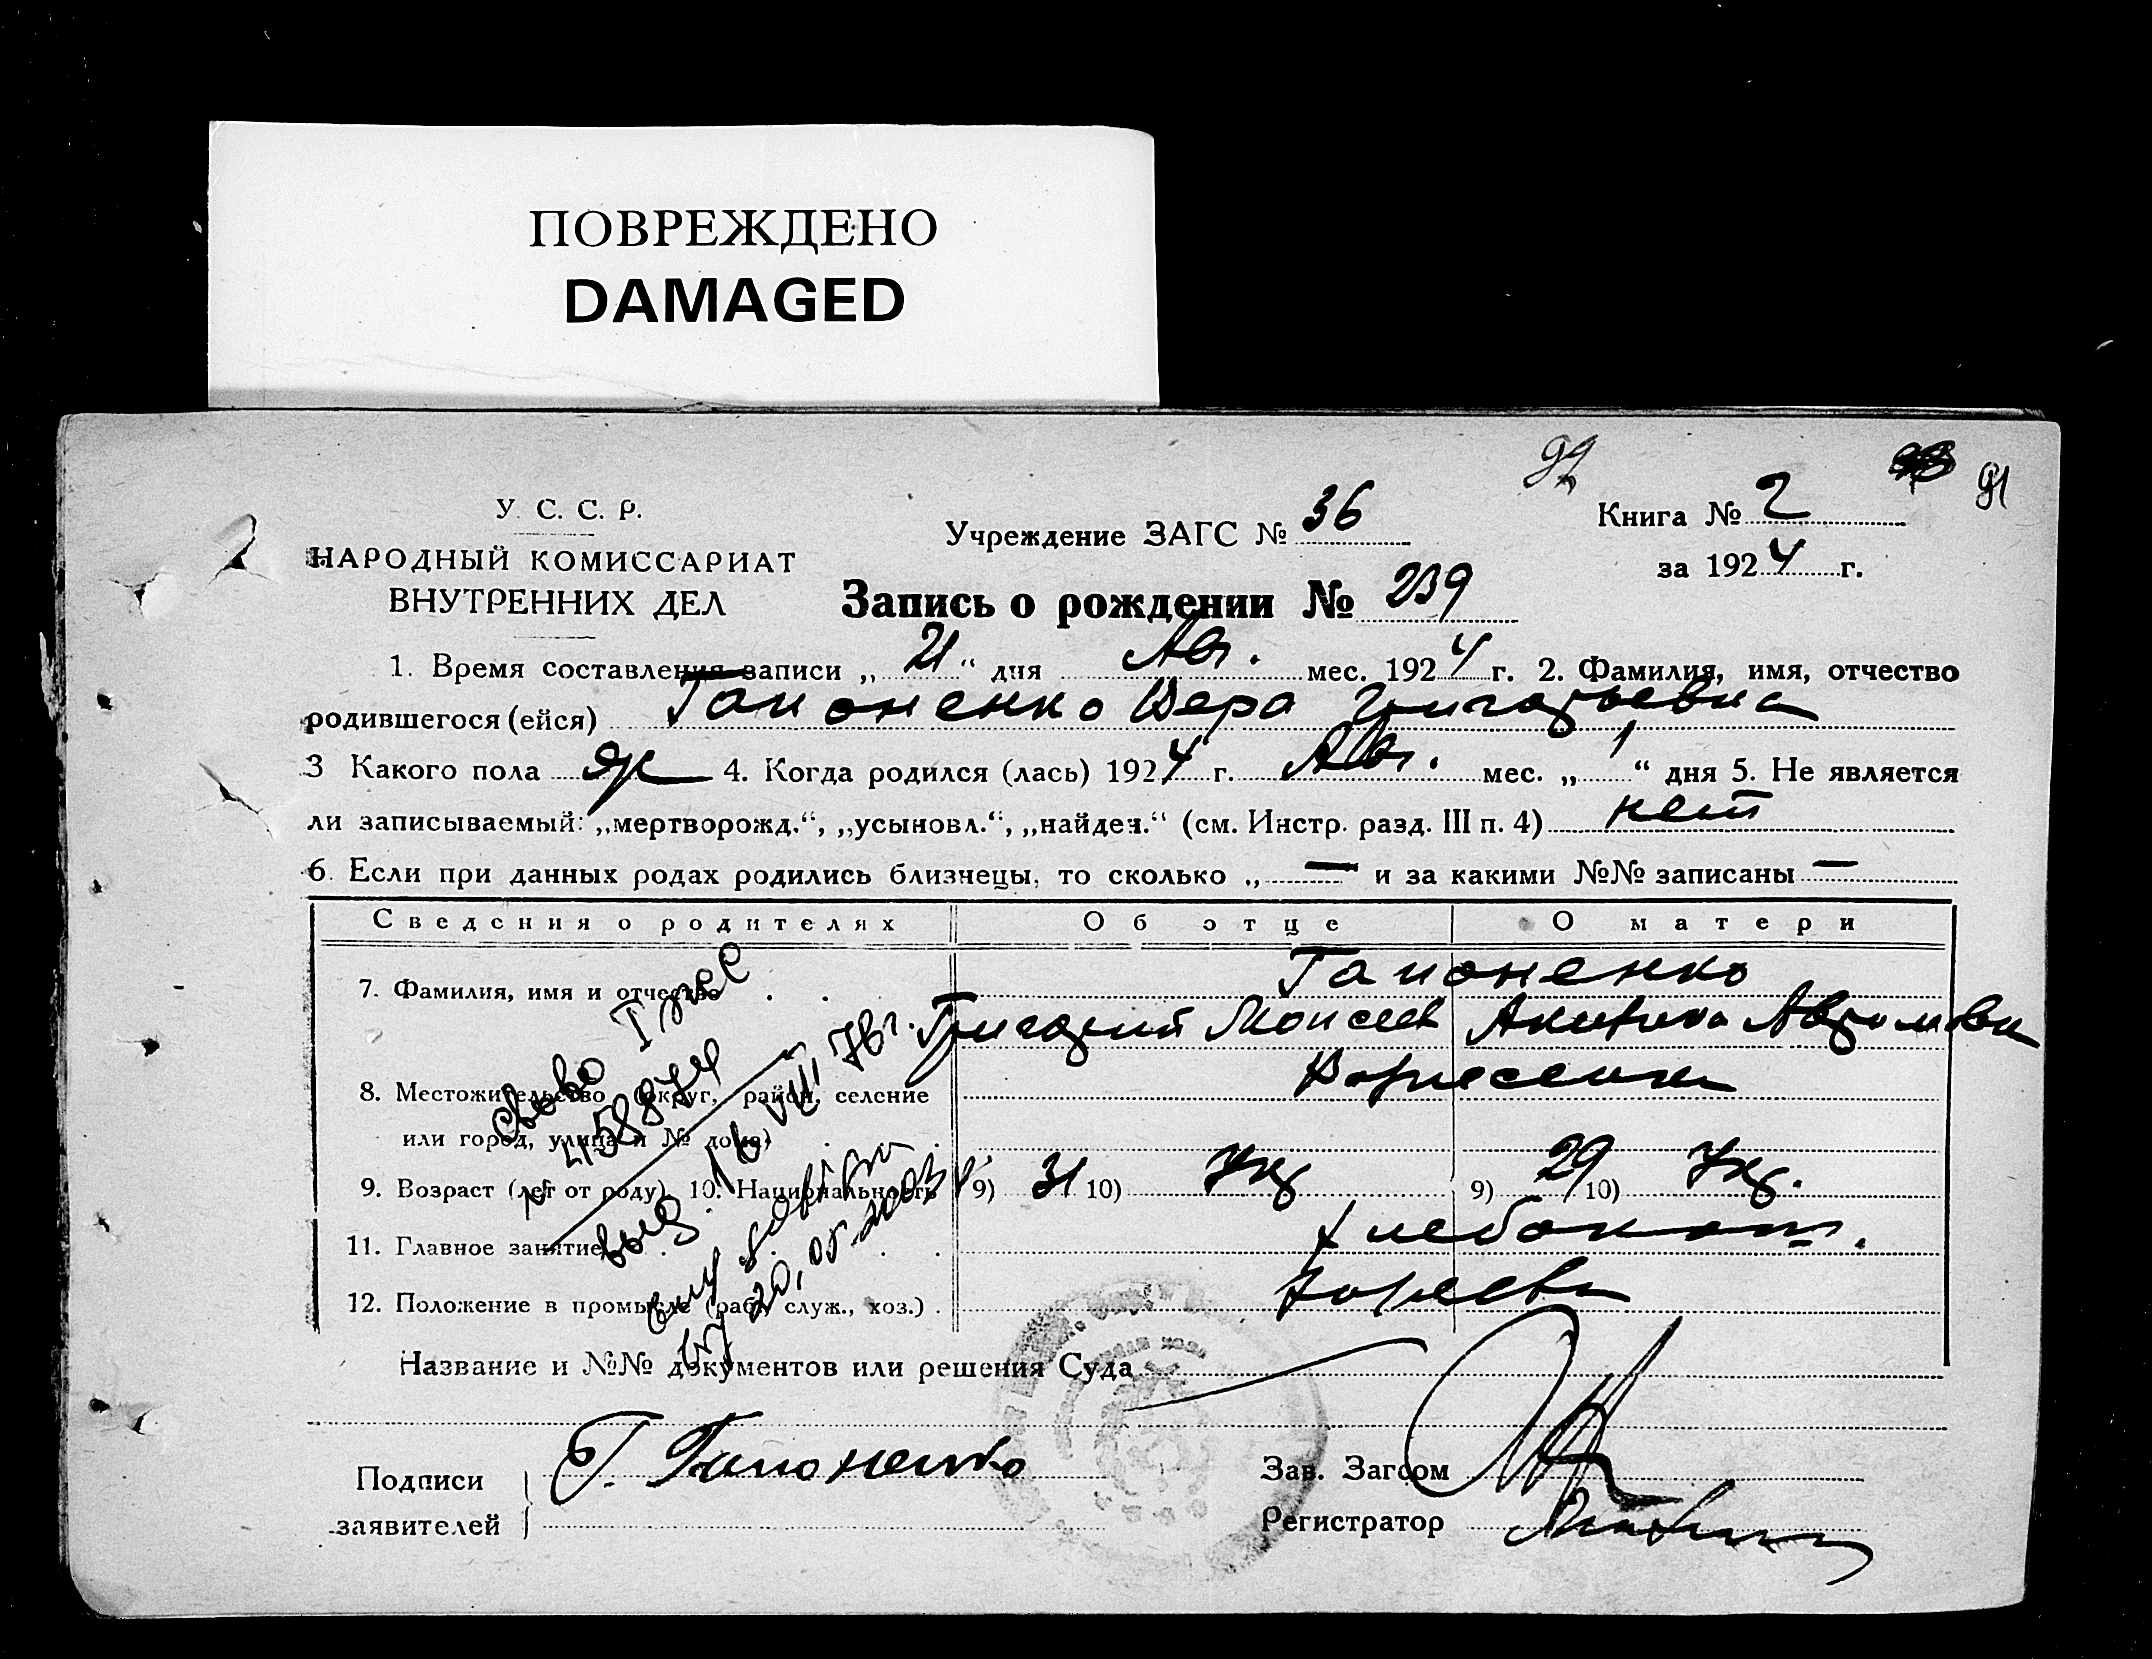 ПОВРЕЖДЕНО
DAMAGED
92 91
У. С. С. Р.
НАРОДНЫЙ КОМИССАРИАТ
ВНУТРЕННИХ ДЕЛ
Учреждение ЗАГС № 36
Книга № 2
за 1924 г.
Запись о рождении № 239
1. Время составления записи „ 21 “ дня Авг. мес. 1924 г. 2. Фамилия, имя, отчество
родившегося (ейся) Гапоненко Вера Григорьевна
3 Какого пола ж 4. Когда родился (лась) 1924 г. Авг. мес. „ 1 “ дня 5. Не является
ли записываемый: „мертворожд.“, „усыновл.“, „найден.“ (см. Инстр. разд. III п. 4) нет
6. Если при данных родах родились близнецы, то сколько „ — и за какими №№ записаны —
Сведения о родителях Об отце О матери
7. Фамилия, имя и отчество . . . Гапоненко
Григорий Моисеев
8. Местожительство (округ, район, селение
или город, улица и № дома)
9. Возраст (лет от роду) 10. Национальность 9) 31 10) Укр 9) 29 10) Укр.
11. Главное занятие хлебопаш.
12. Положение в промысле (раб., служ., хоз.) .
458874
выд. 16 VIII 78г.
20.05.2003
Название и №№ документов или решения Суда
Подписи
заявителей
Г. Гапоненко
Зав. Загсом
Регистратор